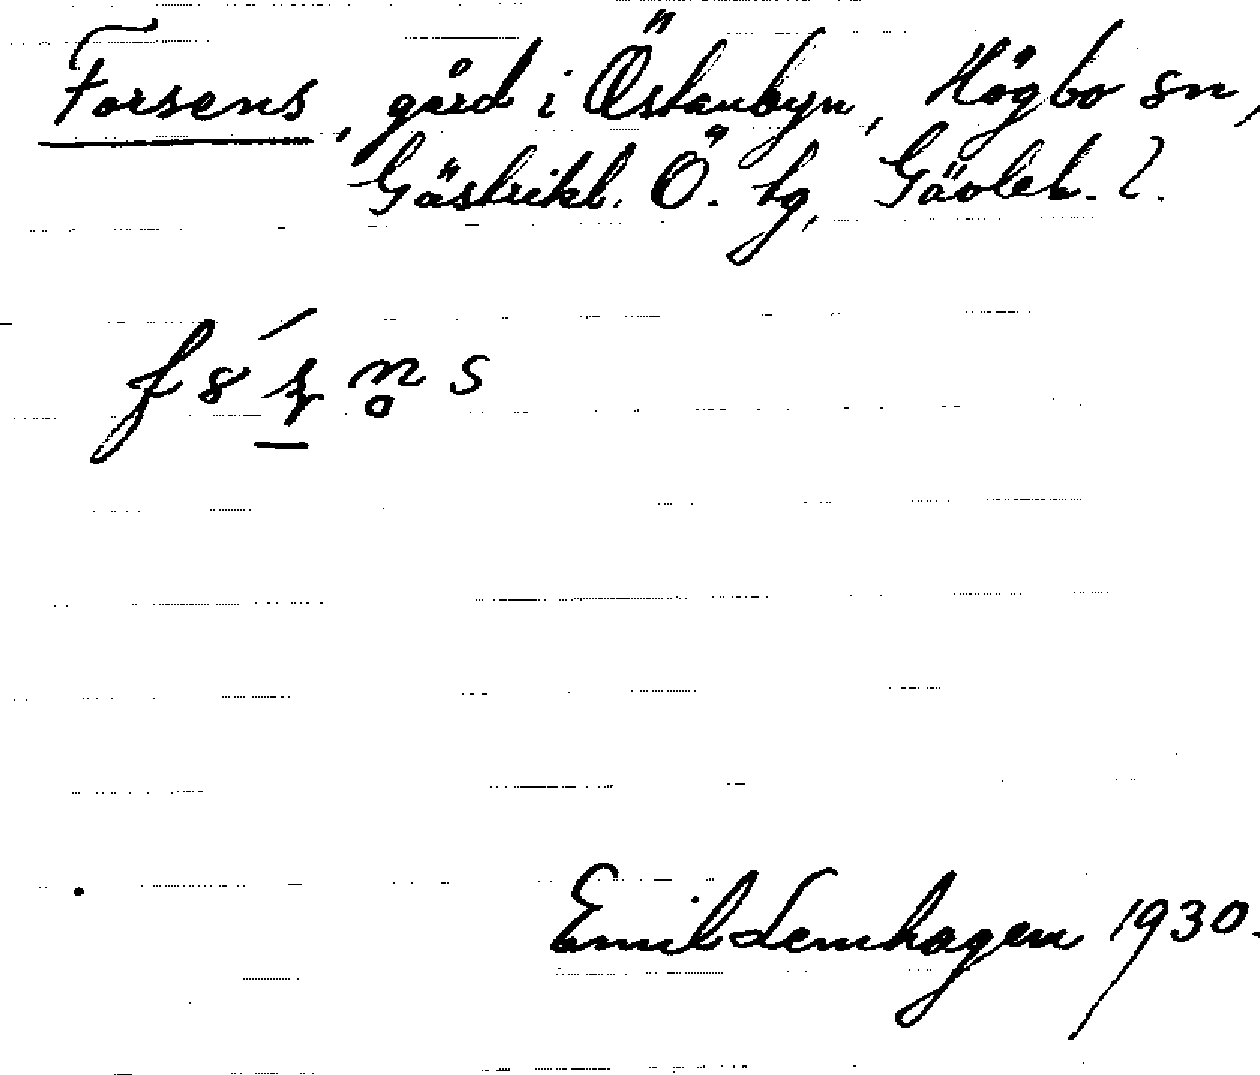 Forsens, gård i Östanbyn, Högbo sn,
Gästrikl. Ö. hg, Gävleb. l.
Emil Lemhagen 1930.